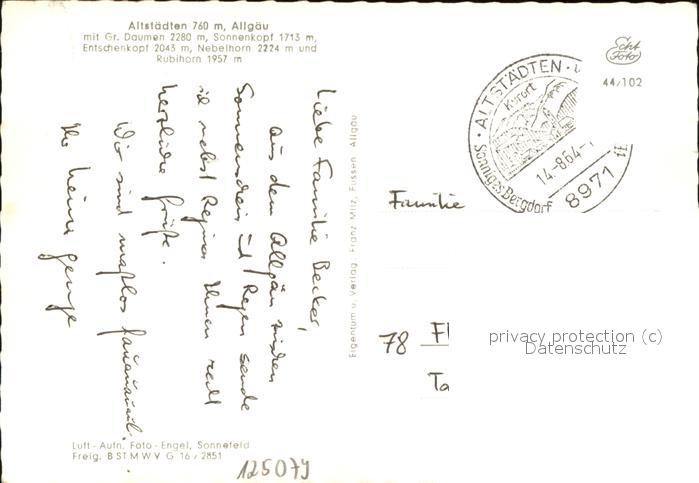 Altstädten 760 m, Allgäu
mit Gr. Daumen 2280 m, Sonnenkopf 1713 m,
Entschenkopf 2043 m, Nebelhorn 2224 m und
Rubihorn 1957 m
Echt
Foto
44/102
ALTSTÄDTEN
Kurort
14.-8.64-
Sonniges Bergdorf
8971
Liebe Familie Becker,
aus dem Allgäu
Sonnenschein und Regen sende
ich nebst Regina Ihnen recht
herzliche Grüße.
Wir sind maßlos
Ihr Heini
Eigentum u. Verlag Franz Milz, Füssen Allgäu
Familie
78 Fl
Ta
privacy protection (c)
Datenschutz
Luft-Aufn. Foto-Engel, Sonnefeld
Freig. BSTMWV G 16/2851
125079